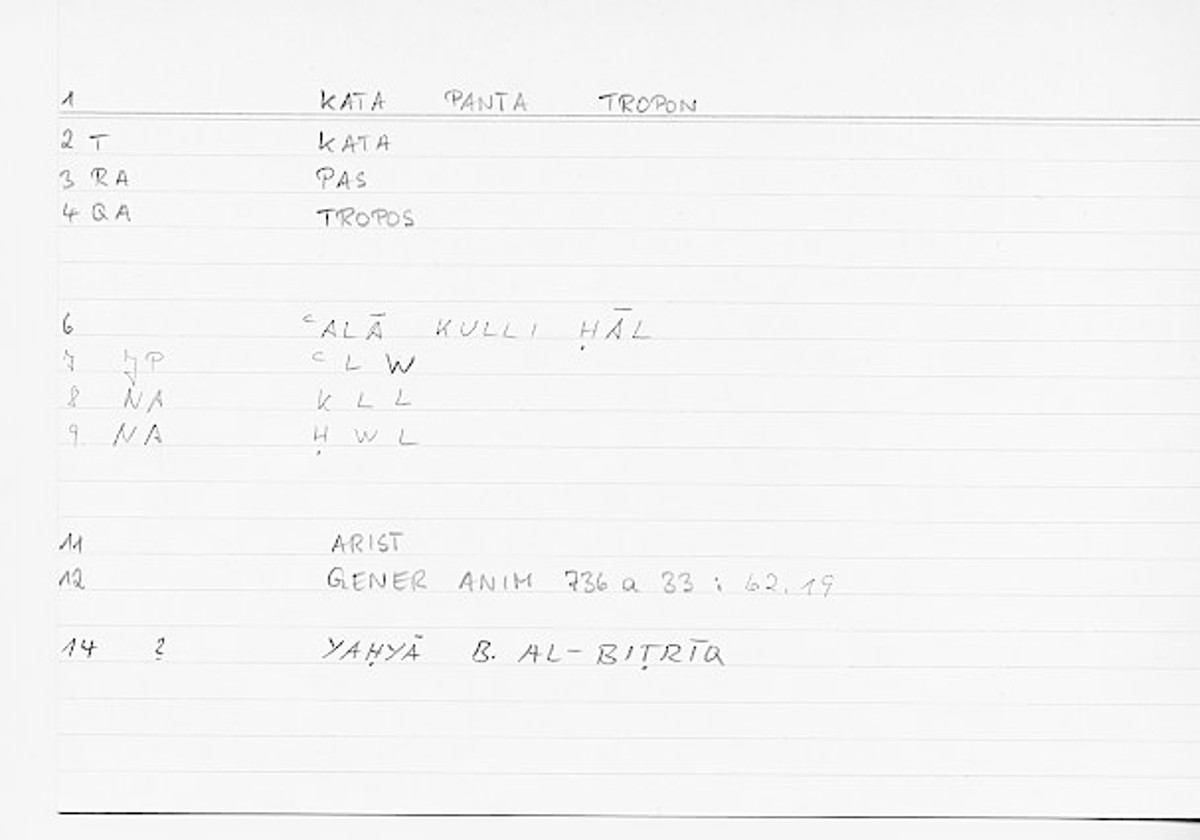 1 KATA PANTA TROPON
2 T KATA
3 RA PAS
4 QA TROPOS
6 ʿALĀ KULLI ḤĀL
7 JP ʿLW
8 NA KLL
9 NA ḤWL
11 ARIST
12 GENER ANIM 736 a 33 ; 62.19
14 ? YAḤYĀ B. AL-BIṬRĪQ